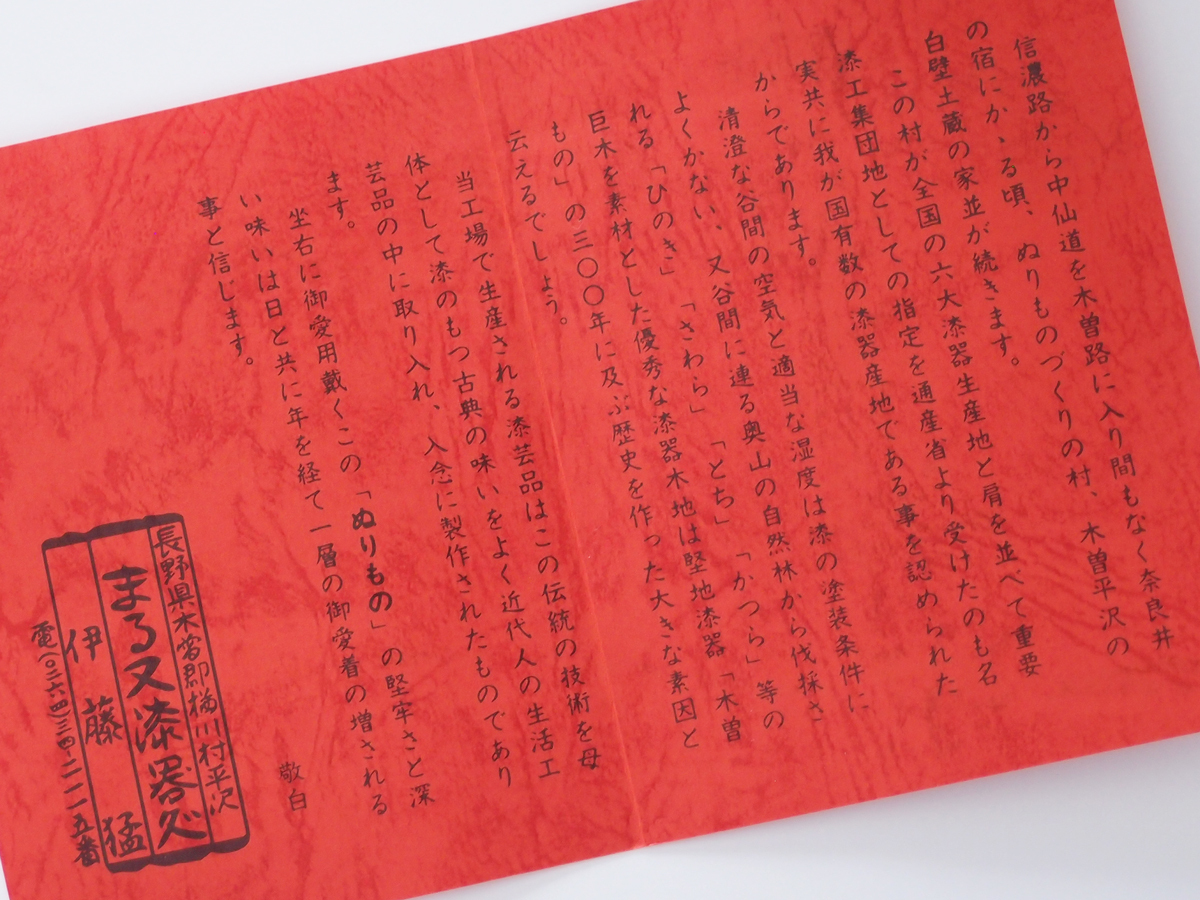 信濃路から中仙道を木曽路に入り間もなく奈良井
の宿にかゝる頃、ぬりものづくりの村、木曽平沢の
白壁土蔵の家並が続きます。
この村が全国の六大漆器生産地と肩を並べて重要
漆工集団地としての指定を通産省より受けたのも名
実共に我が国有数の漆器産地である事を認められた
からであります。
清澄な谷間の空気と適当な湿度は漆の塗装条件に
よくかない、又谷間に連る奥山の自然林から伐採さ
れる「ひのき」「さわら」「とち」「かつら」等の
巨木を素材とした優秀な漆器木地は堅地漆器「木曽
もの」の三〇〇年に及ぶ歴史を作った大きな素因と
云えるでしょう。
当工場で生産される漆芸品はこの伝統の技術を母
体として漆のもつ古典の味いをよく近代人の生活工
芸品の中に取り入れ、入念に製作されたものであり
ます。
坐右に御愛用戴くこの「ぬりもの」の堅牢さと深
い味いは日と共に年を経て一層の御愛着の増される
事と信じます。
敬白
長野県木曽郡楢川村平沢
まる又漆器店
伊藤猛
電(〇二六四)三四-二一一五番